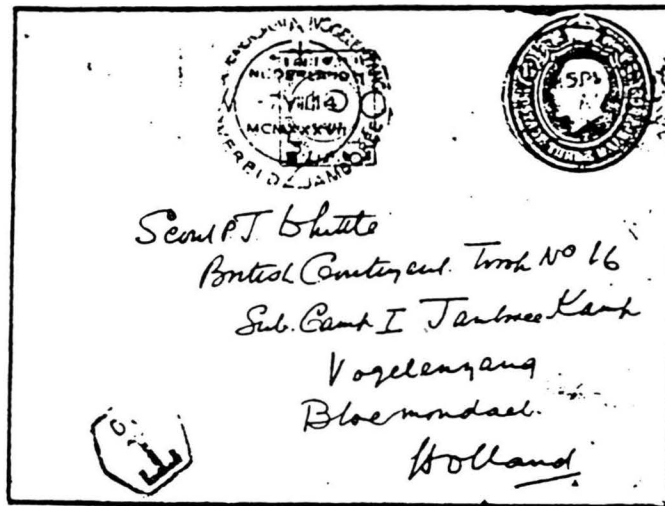 NEDERLAND
MCMXXXVII
WERELD JAMBOREE
Scout P J
British Contingent Troop No 16
Sub. Camp I Jamboree Kamp
Vogelenzang
Bloemendaal.
Holland
T